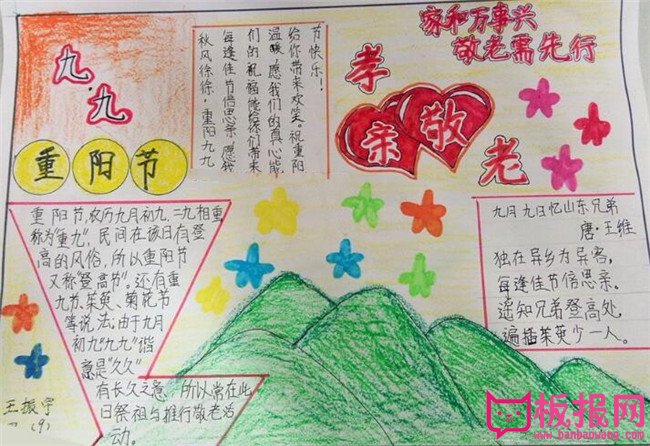 九.九
重阳节
秋风徐徐,重阳九九
每逢佳节倍思亲,愿我
们的祝福能给你们带来
温暖,愿我们的真心能
给你带来欢笑。祝重阳
节快乐!
家和万事兴
敬老需先行
孝亲敬老
重阳节,农历九月初九,二九相重
称为"重九",民间在该日有登
高的风俗,所以重阳节
又称"登高节"。还有重
九节、茱萸、菊花节
等说法;由于九月
初九"九九"谐
意是"久久"
有长久之意,所以常在此
日祭祖与推行敬老活
动。
九月九日忆山东兄弟
唐·王维
独在异乡为异客,
每逢佳节倍思亲。
遥知兄弟登高处,
遍插茱萸少一人。
王振宇
一(9)
板报网
www.banbaowang.com